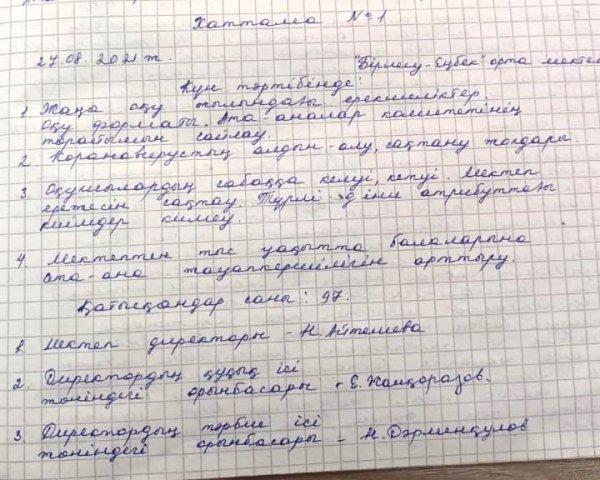 Хаттама №1
27.08.2021 ж. "Бірлесу-Еңбек" орта мектебі
Күн тәртібінде:
1. Жаңа оқу жылындағы ерекшеліктер.
Оқу форматы. Ата-аналар комитетінің
төрайымын сайлау.
2. Коранавирустың алдын-алу, сақтану жолдары.
3. Оқушылардың сабаққа келуі, кетуі. Мектеп
ережесін сақтау. Түрлі діни атрибуттағы
киімдер кимеу.
4. Мектептен тыс уақытта балаларына
ата-ана жауапкершілігін арттыру.
Қатысқандар саны: 97.
1. Мектеп директоры - Н. Айтешева
2. Директордың оқу ісі
жөніндегі орынбасары - Е. Жанқоразов.
3. Директордың тәрбие ісі
жөніндегі орынбасары - Н. Дәрменқулов